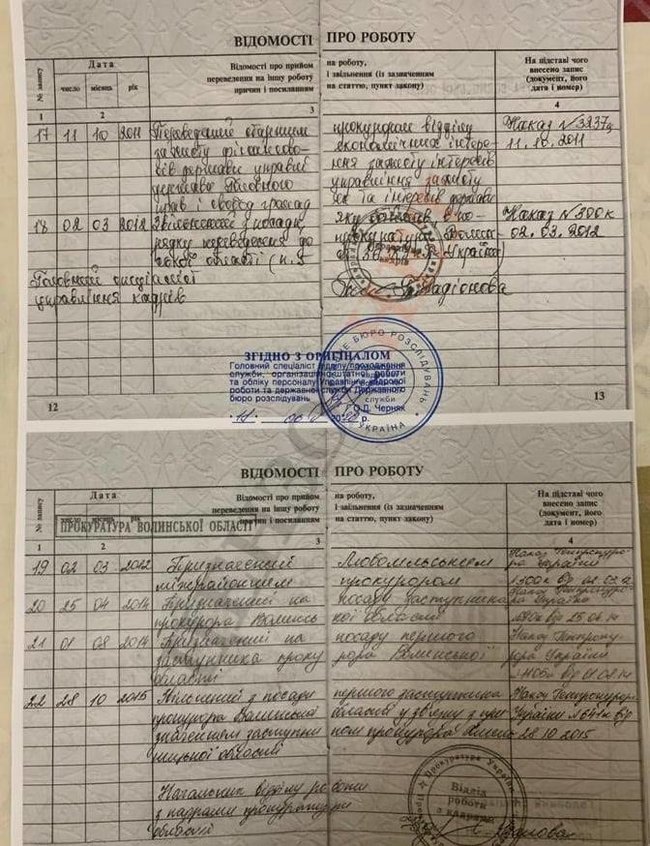 ВІДОМОСТІ ПРО РОБОТУ
№ запису
Дата
число місяць рік
Відомості про прийом
переведення на іншу роботу
причин і посиланням
на роботу,
і звільнення (із зазначенням
на статтю, пункт закону)
На підставі чого
внесено запис
(документ, його
дата і номер)
1 2 3 4
17 11 10 2011 Переведений старшим прокурором відділу Наказ №3237ц
захисту фінансово- економічних інтере- 11.10.2011
сів держави управлі- ння захисту інтересів
держави Головного управління захисту
прав і свобод громад ян та інтересів держави
18 02 03 2012 Звільнений з посади Наказ №300к
рядку переведення до прокуратури Волинсь 02.03.2012
кої області (п. 5 ст. 36 КЗпП України)
Головний спеціаліст
управління кадрів
Радіонова
ЗГІДНО З ОРИГІНАЛОМ
Головний спеціаліст відділу проходження
служби, організаційно-штатної роботи
та обліку персоналу Управління кадрової
роботи та державної служби Державного
бюро розслідувань
О.Д. Черняк
БЮРО РОЗСЛІДУВАНЬ
УКРАЇНА
12 13
ВІДОМОСТІ ПРО РОБОТУ
№ запису
Дата
число місяць рік
ПРОКУРАТУРА ВОЛИНСЬКОЇ ОБЛАСТІ
Відомості про прийом
переведення на іншу роботу
причин і посиланням
на роботу,
і звільнення (із зазначенням
на статтю, пункт закону)
На підставі чого
внесено запис
(документ, його
дата і номер)
1 2 3 4
19 02 03 2012 Призначений Любомльським Наказ Генпрокуро-
міжрайонним прокурором ра України
20 25 04 2014 Призначений на посаду заступника Наказ Генпрокуро-
прокурора Волинсь кої області ра України
21 01 08 2014 Призначений на посаду першого Наказ Генпроку-
заступника проку рора Волинської рора України
області
22 28 10 2015 Звільнений з посади першого заступника Наказ Генпрокурора
прокурора Волинської області у зв'язку з при України
значенням заступни ком прокурора Хмель 28.10.2015
ницької області
Начальник відділу роботи
з кадрами прокуратури
області
Прокуратура України
Відділ
роботи
з кадрами